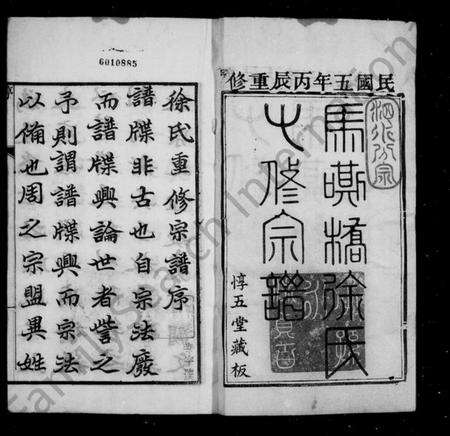 民國五年丙辰重修
馬嘶橋徐氏
七修宗譜
惇五堂藏板
6010885
徐氏重修宗譜序
譜牒非古也自宗法廢
而譜牒興論世者訾之
予則謂譜牒興而宗法
以俻也周之宗盟異姓
FamilySearch International